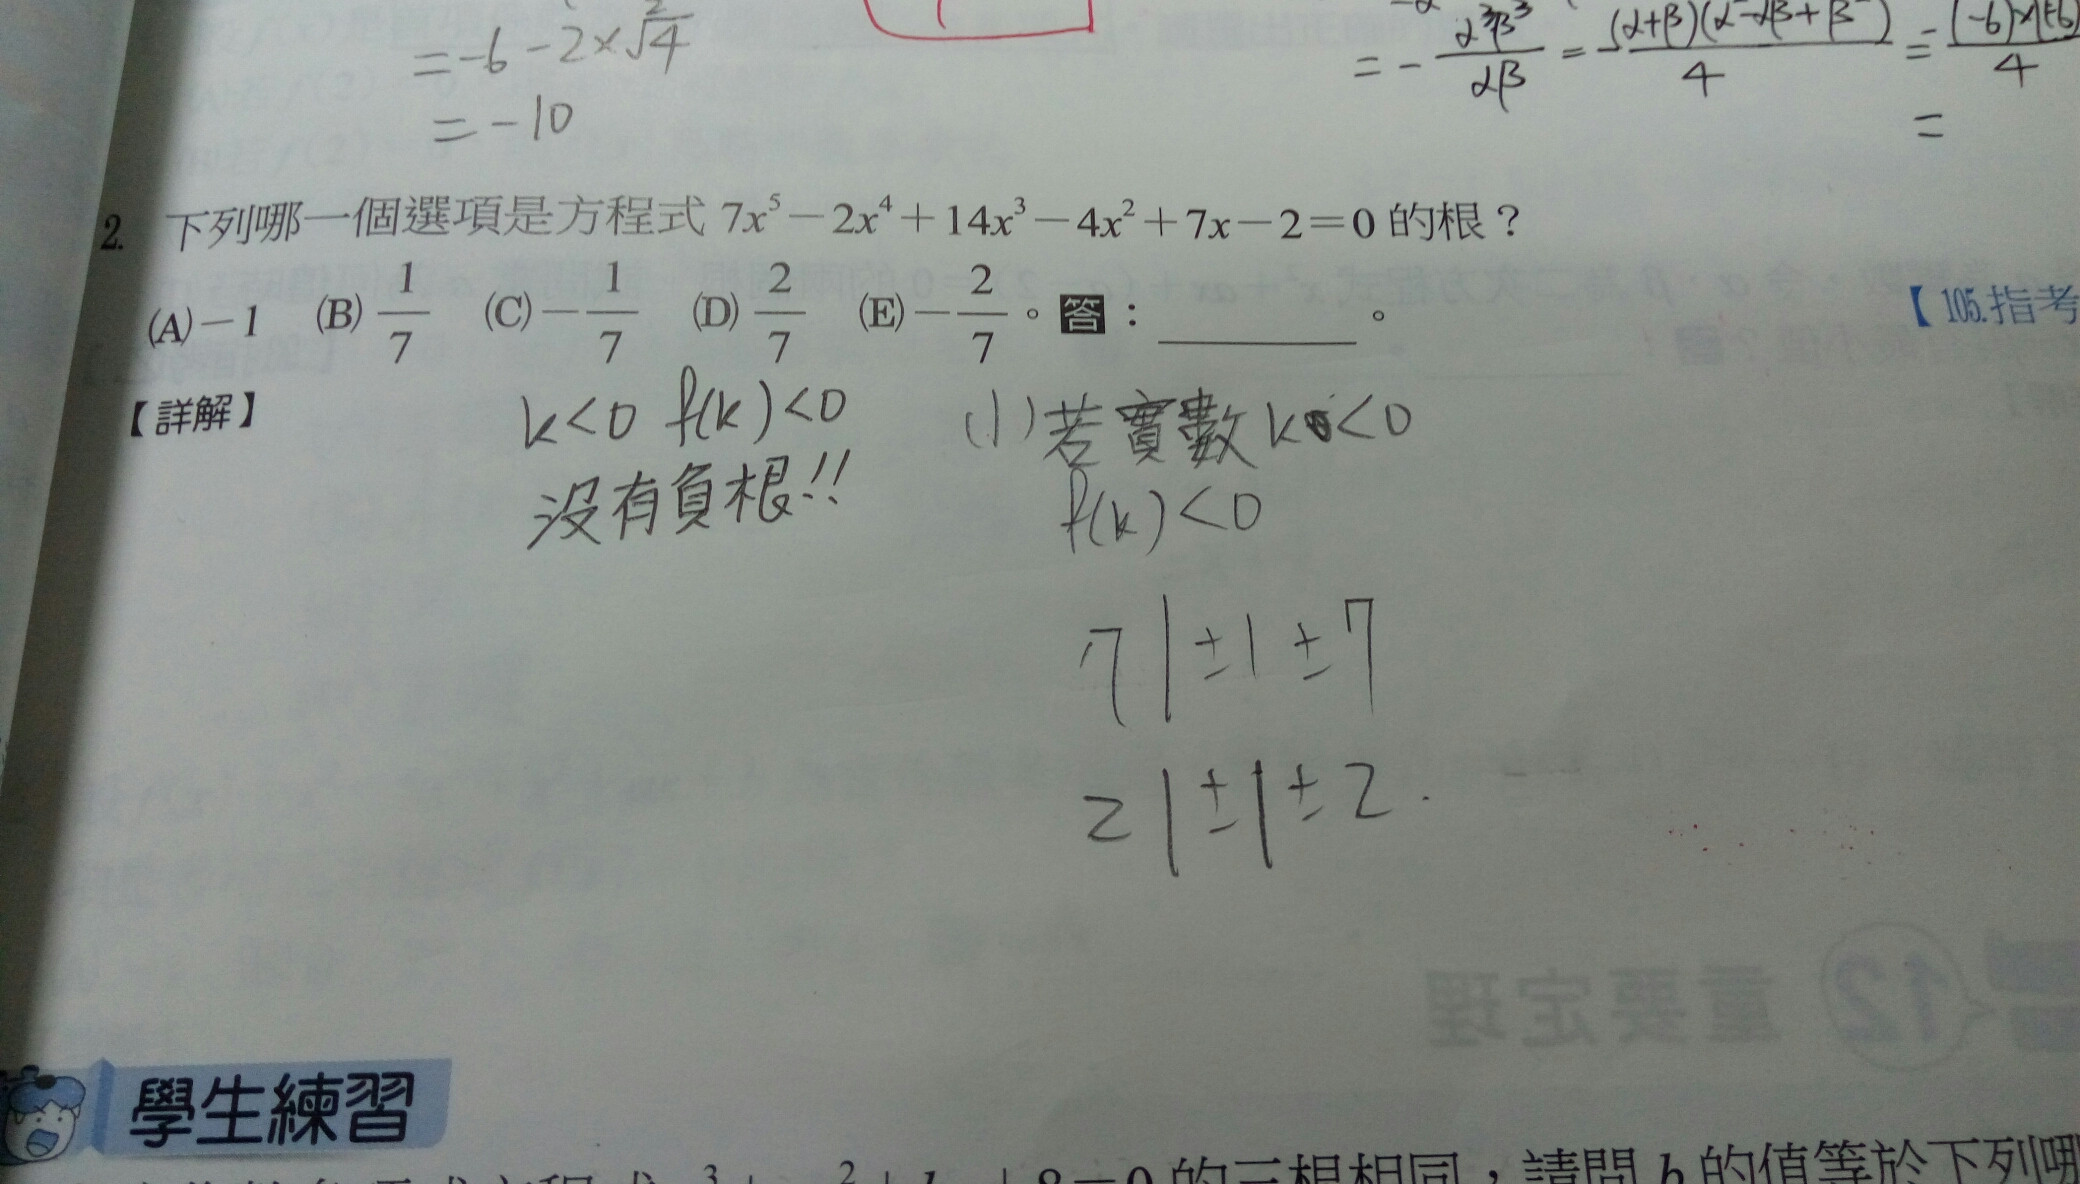 = -6 - 2×√4
= -10
= - α³β³/αβ = (α+β)(α²-αβ+β²)/4 =
=
2. 下列哪一個選項是方程式 7x⁵－2x⁴＋14x³－4x²＋7x－2＝0 的根？
(A)－1 (B) 1/7 (C)－1/7 (D) 2/7 (E)－2/7。答：＿＿＿＿。
【105.指考
【詳解】
k<0 f(k)<0
沒有負根!!
(1) 若實數 k<0
f(k)<0
7 | ±1 ±7
2 | ±1 ±2
學生練習
的三根相同，請問 b 的值等於下列哪